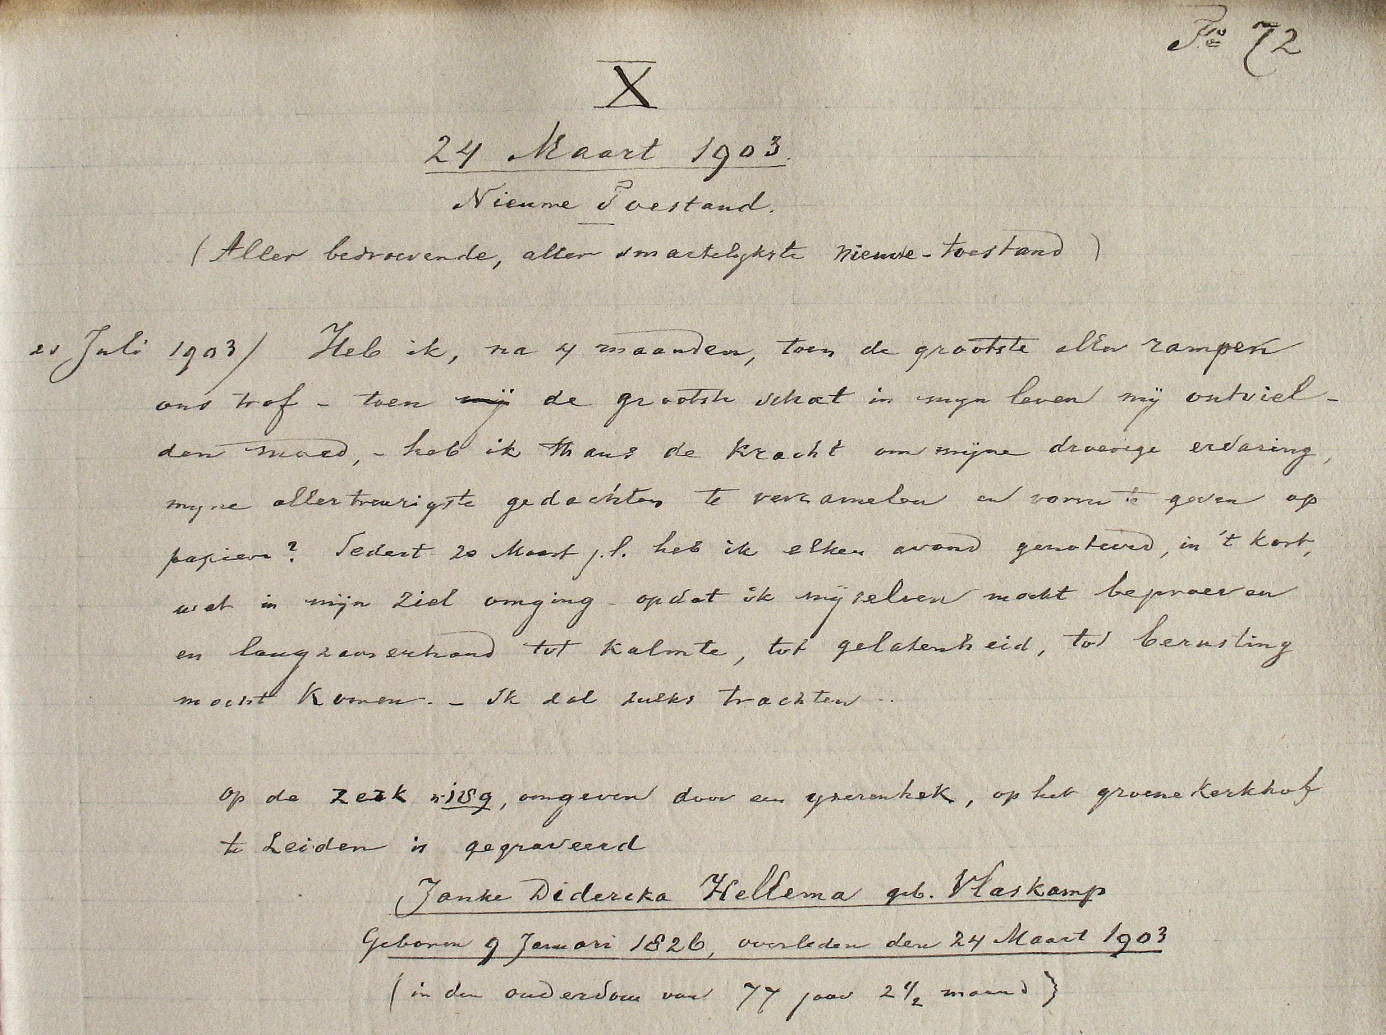 Fo 72
X
24 Maart 1903.
Nieuwe Toestand.
(Aller bedroevende, aller smartelykste nieuwe-toestand)
21 Juli 1903/ Heb ik, na 4 maanden, toen de grootste aller rampen
ons trof - toen mij de grootste schat in myn leven mij ontviel -
den moed, - heb ik thans de kracht om mijne droevige ervaring,
myne allertreurigste gedachten te verzamelen en vorm te geven op
papier? Sedert 20 Maart j.l. heb ik elken avond genoteerd, in 't kort,
wat in mijn ziel omging - opdat ik mijselven mocht beproeven
en langzamerhand tot kalmte, tot gelatenheid, tot berusting
mocht komen. - Ik zal zulks trachten ..
op de zerk n. 189, omgeven door een yzerenhek, op het groene Kerkhof
te Leiden is gegraveerd
Janke Didercka Hellema geb. Vlaskamp
Geboren 9 Januari 1826, overleden den 24 Maart 1903
(in den ouderdom van 77 jaar 2 1/2 maand)